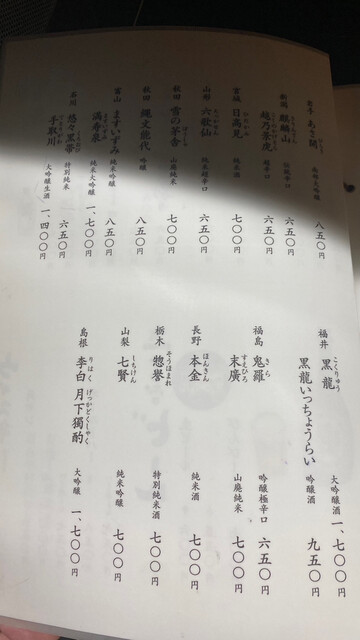 岩手 あさ開 純米大吟醸 八五〇円
新潟 麒麟山 伝統辛口 六五〇円
越乃景虎 超辛口 六五〇円
宮城 日高見 純米酒 七〇〇円
山形 六歌仙 純米超辛口 六五〇円
秋田 雪の茅舎 山廃純米 七〇〇円
秋田 縄文能代 吟醸 八五〇円
富山 ますいずみ 純米吟醸 八五〇円
満寿泉 純米大吟醸 一、七〇〇円
石川 悠々黒帯 特別純米 六五〇円
手取川 大吟醸生酒 一、四〇〇円
福井 黒龍 こくりゅう 大吟醸 一、七〇〇円
黒龍いっちょうらい 吟醸酒 九五〇円
福島 鬼羅 きら 吟醸極辛口 六五〇円
末廣 すえひろ 山廃純米 七〇〇円
長野 本金 ほんきん 純米酒 七〇〇円
栃木 惣誉 そうほまれ 特別純米酒 七〇〇円
山梨 七賢 しちけん 純米吟醸 七〇〇円
島根 李白 月下獨酌 りはく げっかどくしゃく 大吟醸 一、七〇〇円